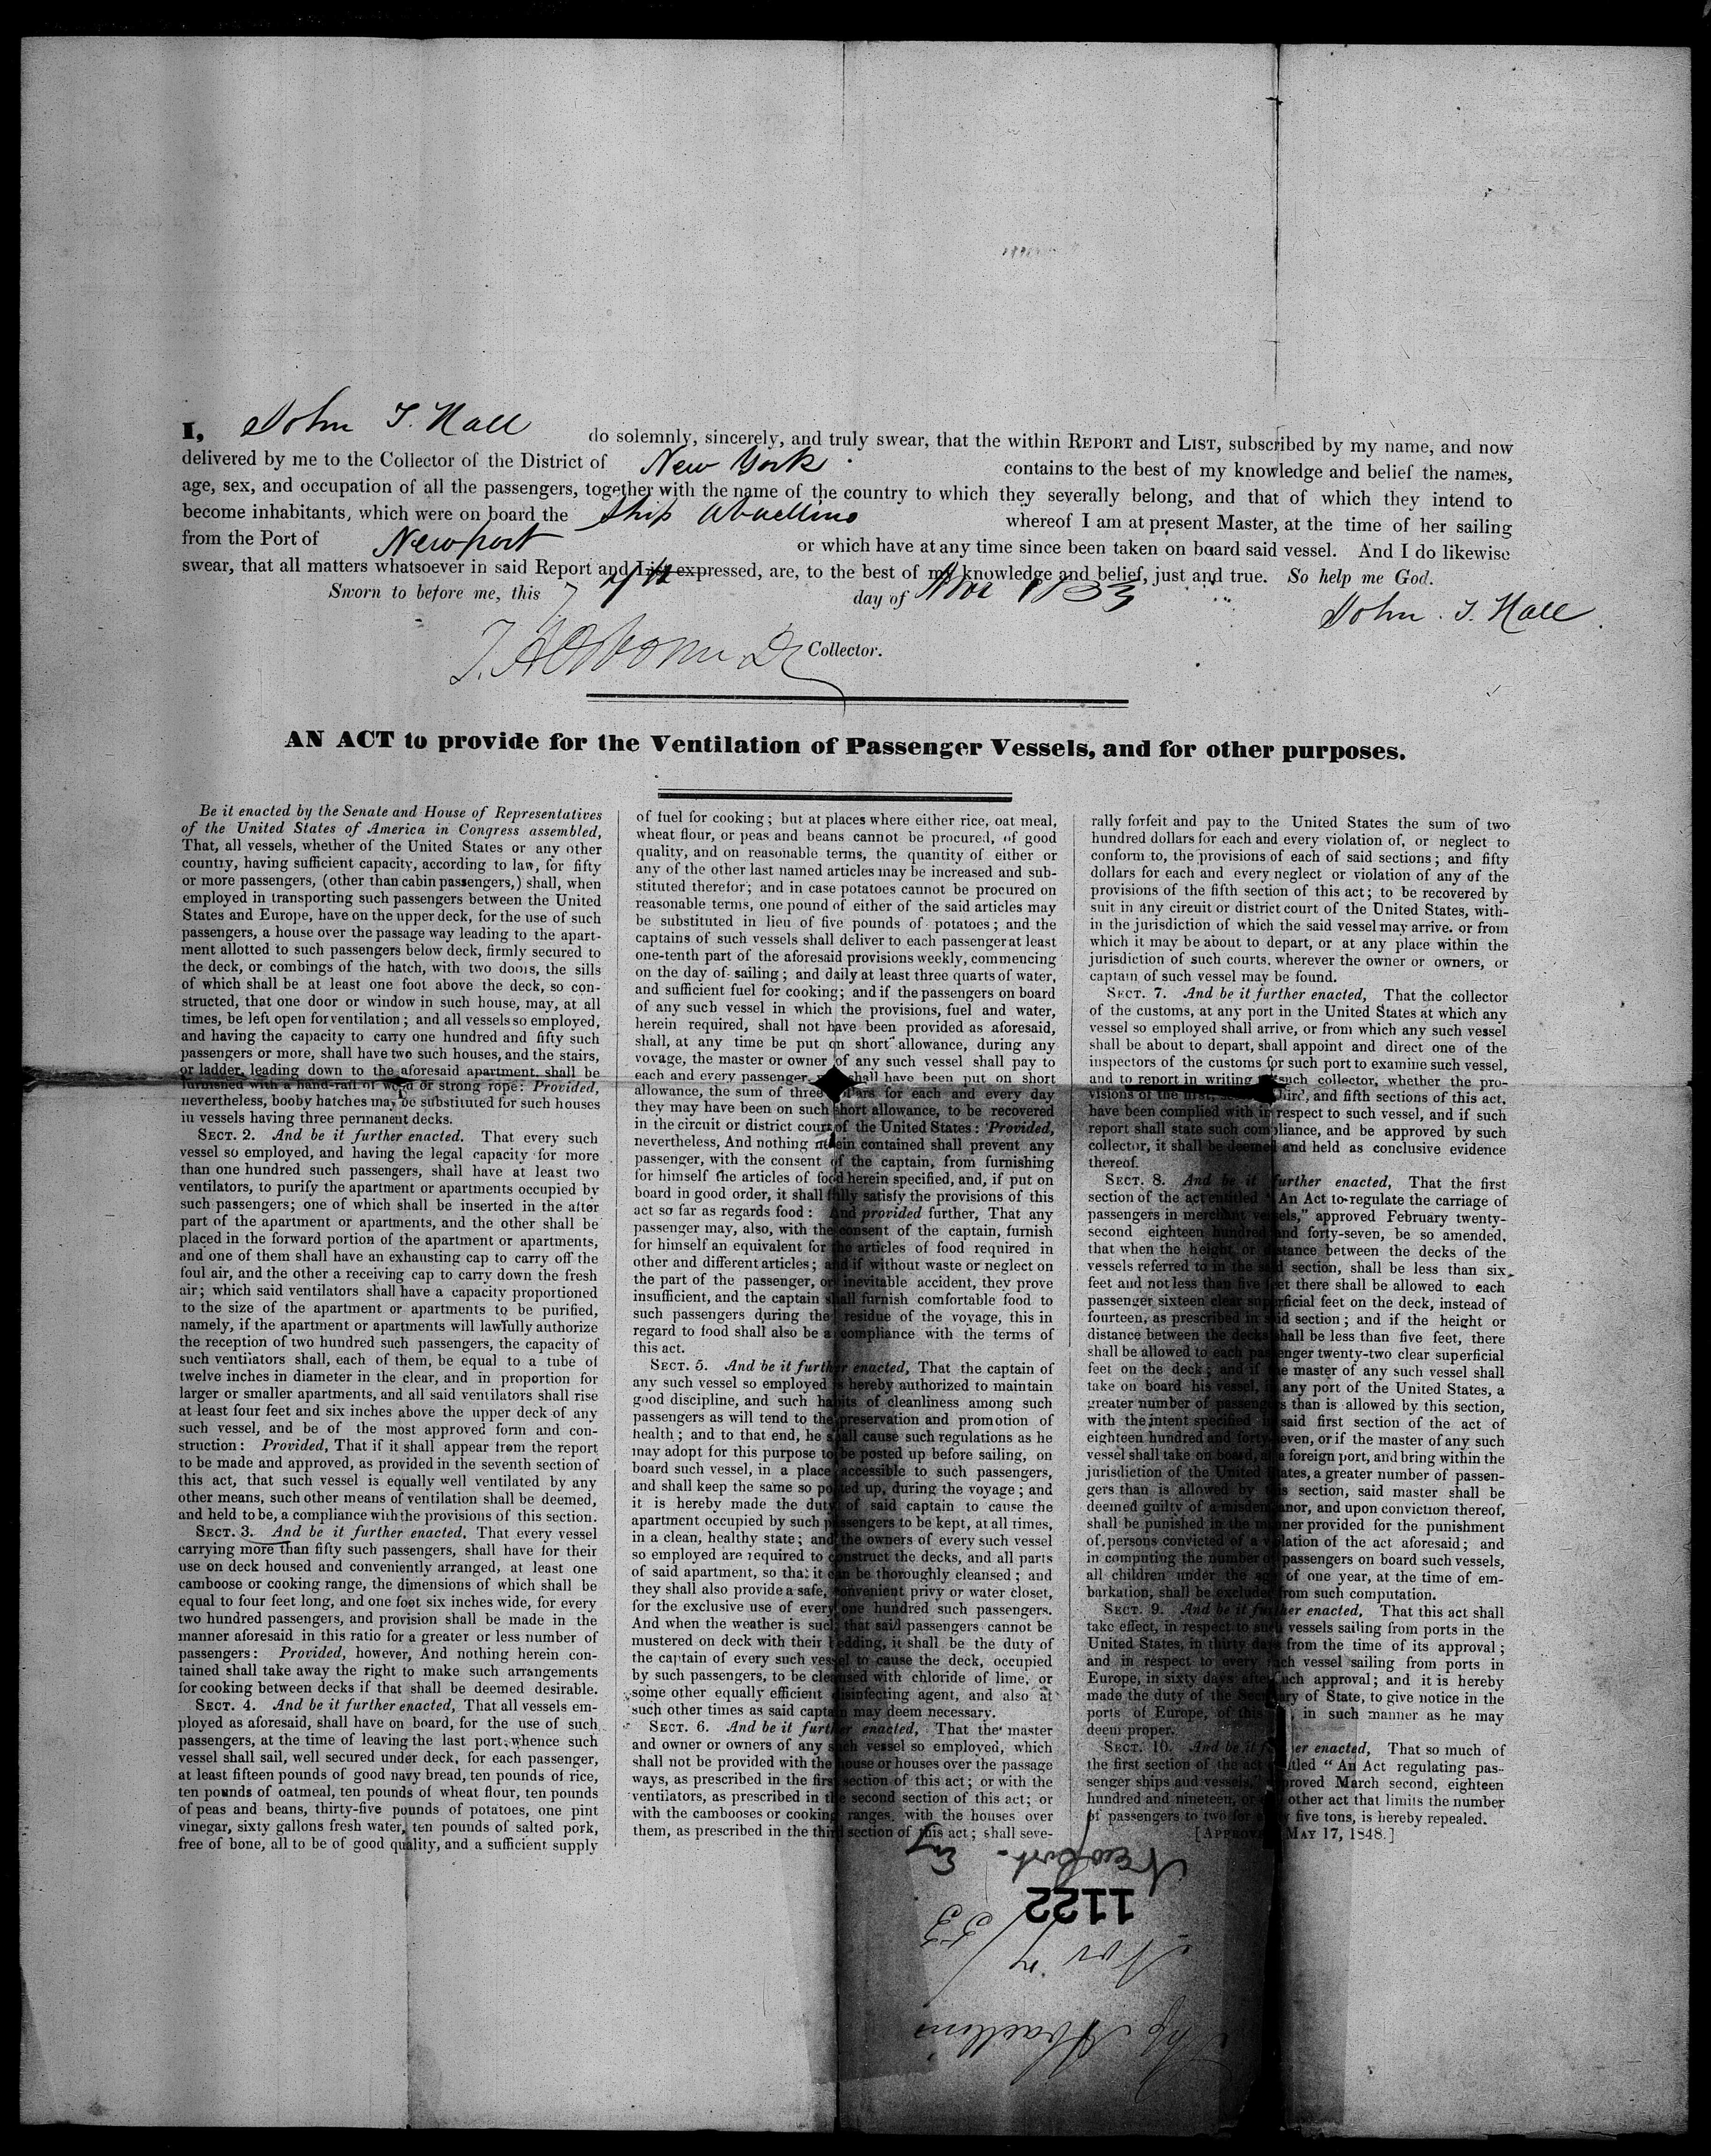 I, John T. Hall do solemnly, sincerely, and truly swear, that the within REPORT and LIST, subscribed by my name, and now
delivered by me to the Collector of the District of New York contains to the best of my knowledge and belief the names,
age, sex, and occupation of all the passengers, together with the name of the country to which they severally belong, and that of which they intend to
become inhabitants, which were on board the Ship Abaellino whereof I am at present Master, at the time of her sailing
from the Port of Newport or which have at any time since been taken on board said vessel. And I do likewise
swear, that all matters whatsoever in said Report and List expressed, are, to the best of my knowledge and belief, just and true. So help me God.
Sworn to before me, this 7th day of Nov 1853
John. T. Hall
Collector.
AN ACT to provide for the Ventilation of Passenger Vessels, and for other purposes.
Be it enacted by the Senate and House of Representatives
of the United States of America in Congress assembled,
That, all vessels, whether of the United States or any other
country, having sufficient capacity, according to law, for fifty
or more passengers, (other than cabin passengers,) shall, when
employed in transporting such passengers between the United
States and Europe, have on the upper deck, for the use of such
passengers, a house over the passage way leading to the apart-
ment allotted to such passengers below deck, firmly secured to
the deck, or combings of the hatch, with two doors, the sills
of which shall be at least one foot above the deck, so con-
structed, that one door or window in such house, may, at all
times, be left open for ventilation; and all vessels so employed,
and having the capacity to carry one hundred and fifty such
passengers or more, shall have two such houses, and the stairs,
or ladder, leading down to the aforesaid apartment, shall be
furnished with a hand-rail of wood or strong rope: Provided,
nevertheless, booby hatches may be substituted for such houses
in vessels having three permanent decks.
SECT. 2. And be it further enacted. That every such
vessel so employed, and having the legal capacity for more
than one hundred such passengers, shall have at least two
ventilators, to purify the apartment or apartments occupied by
such passengers; one of which shall be inserted in the after
part of the apartment or apartments, and the other shall be
placed in the forward portion of the apartment or apartments,
and one of them shall have an exhausting cap to carry off the
foul air, and the other a receiving cap to carry down the fresh
air; which said ventilators shall have a capacity proportioned
to the size of the apartment or apartments to be purified,
namely, if the apartment or apartments will lawfully authorize
the reception of two hundred such passengers, the capacity of
such ventilators shall, each of them, be equal to a tube of
twelve inches in diameter in the clear, and in proportion for
larger or smaller apartments, and all said ventilators shall rise
at least four feet and six inches above the upper deck of any
such vessel, and be of the most approved form and con-
struction: Provided, That if it shall appear from the report
to be made and approved, as provided in the seventh section of
this act, that such vessel is equally well ventilated by any
other means, such other means of ventilation shall be deemed,
and held to be, a compliance with the provisions of this section.
SECT. 3. And be it further enacted. That every vessel
carrying more than fifty such passengers, shall have for their
use on deck housed and conveniently arranged, at least one
camboose or cooking range, the dimensions of which shall be
equal to four feet long, and one foot six inches wide, for every
two hundred passengers, and provision shall be made in the
manner aforesaid in this ratio for a greater or less number of
passengers: Provided, however, And nothing herein con-
tained shall take away the right to make such arrangements
for cooking between decks if that shall be deemed desirable.
SECT. 4. And be it further enacted, That all vessels em-
ployed as aforesaid, shall have on board, for the use of such
passengers, at the time of leaving the last port, whence such
vessel shall sail, well secured under deck, for each passenger,
at least fifteen pounds of good navy bread, ten pounds of rice,
ten pounds of oatmeal, ten pounds of wheat flour, ten pounds
of peas and beans, thirty-five pounds of potatoes, one pint
vinegar, sixty gallons fresh water, ten pounds of salted pork,
free of bone, all to be of good quality, and a sufficient supply
of fuel for cooking; but at places where either rice, oat meal,
wheat flour, or peas and beans cannot be procured, of good
quality, and on reasonable terms, the quantity of either or
any of the other last named articles may be increased and sub-
stituted therefor; and in case potatoes cannot be procured on
reasonable terms, one pound of either of the said articles may
be substituted in lieu of five pounds of potatoes; and the
captains of such vessels shall deliver to each passenger at least
one-tenth part of the aforesaid provisions weekly, commencing
on the day of sailing; and daily at least three quarts of water,
and sufficient fuel for cooking; and if the passengers on board
of any such vessel in which the provisions, fuel and water,
herein required, shall not have been provided as aforesaid,
shall, at any time be put on short allowance, during any
voyage, the master or owner of any such vessel shall pay to
each and every passenger who shall have been put on short
allowance, the sum of three dollars for each and every day
they may have been on such short allowance, to be recovered
in the circuit or district court of the United States: Provided,
nevertheless, And nothing herein contained shall prevent any
passenger, with the consent of the captain, from furnishing
for himself the articles of food herein specified, and, if put on
board in good order, it shall fully satisfy the provisions of this
act so far as regards food: And provided further, That any
passenger may, also, with the consent of the captain, furnish
for himself an equivalent for the articles of food required in
other and different articles; and if without waste or neglect on
the part of the passenger, or inevitable accident, they prove
insufficient, and the captain shall furnish comfortable food to
such passengers during the residue of the voyage, this in
regard to food shall also be a compliance with the terms of
this act.
SECT. 5. And be it further enacted, That the captain of
any such vessel so employed is hereby authorized to maintain
good discipline, and such habits of cleanliness among such
passengers as will tend to the preservation and promotion of
health; and to that end, he shall cause such regulations as he
may adopt for this purpose to be posted up before sailing, on
board such vessel, in a place accessible to such passengers,
and shall keep the same so posted up, during the voyage; and
it is hereby made the duty of said captain to cause the
apartment occupied by such passengers to be kept, at all times,
in a clean, healthy state; and the owners of every such vessel
so employed are required to construct the decks, and all parts
of said apartment, so that it can be thoroughly cleansed; and
they shall also provide a safe, convenient privy or water closet,
for the exclusive use of every one hundred such passengers.
And when the weather is such that said passengers cannot be
mustered on deck with their bedding, it shall be the duty of
the captain of every such vessel to cause the deck, occupied
by such passengers, to be cleansed with chloride of lime, or
some other equally efficient disinfecting agent, and also at
such other times as said captain may deem necessary.
SECT. 6. And be it further enacted, That the master
and owner or owners of any such vessel so employed, which
shall not be provided with the house or houses over the passage
ways, as prescribed in the first section of this act; or with the
ventilators, as prescribed in the second section of this act; or
with the cambooses or cooking ranges, with the houses over
them, as prescribed in the third section of this act; shall seve-
rally forfeit and pay to the United States the sum of two
hundred dollars for each and every violation of, or neglect to
conform to, the provisions of each of said sections; and fifty
dollars for each and every neglect or violation of any of the
provisions of the fifth section of this act; to be recovered by
suit in any circuit or district court of the United States, with-
in the jurisdiction of which the said vessel may arrive, or from
which it may be about to depart, or at any place within the
jurisdiction of such courts, wherever the owner or owners, or
captain of such vessel may be found.
SECT. 7. And be it further enacted, That the collector
of the customs, at any port in the United States at which any
vessel so employed shall arrive, or from which any such vessel
shall be about to depart, shall appoint and direct one of the
inspectors of the customs for such port to examine such vessel,
and to report in writing to such collector, whether the pro-
visions of the first, second, third, and fifth sections of this act,
have been complied with in respect to such vessel, and if such
report shall state such compliance, and be approved by such
collector, it shall be deemed and held as conclusive evidence
thereof.
SECT. 8. And be it further enacted, That the first
section of the act entitled "An Act to regulate the carriage of
passengers in merchant vessels," approved February twenty-
second eighteen hundred and forty-seven, be so amended,
that when the height or distance between the decks of the
vessels referred to in the said section, shall be less than six
feet and not less than five feet there shall be allowed to each
passenger sixteen clear superficial feet on the deck, instead of
fourteen, as prescribed in said section; and if the height or
distance between the decks shall be less than five feet, there
shall be allowed to each passenger twenty-two clear superficial
feet on the deck; and if the master of any such vessel shall
take on board his vessel, in any port of the United States, a
greater number of passengers than is allowed by this section,
with the intent specified in said first section of the act of
eighteen hundred and forty-seven, or if the master of any such
vessel shall take on board, at a foreign port, and bring within the
jurisdiction of the United States, a greater number of passen-
gers than is allowed by this section, said master shall be
deemed guilty of a misdemeanor, and upon conviction thereof,
shall be punished in the manner provided for the punishment
of persons convicted of a violation of the act aforesaid; and
in computing the number of passengers on board such vessels,
all children under the age of one year, at the time of em-
barkation, shall be excluded from such computation.
SECT. 9. And be it further enacted, That this act shall
take effect, in respect to such vessels sailing from ports in the
United States, in thirty days from the time of its approval;
and in respect to every such vessel sailing from ports in
Europe, in sixty days after such approval; and it is hereby
made the duty of the Secretary of State, to give notice in the
ports of Europe, of this in such manner as he may
deem proper.
SECT. 10. And be it further enacted, That so much of
the first section of the act entitled "An Act regulating pas-
senger ships and vessels," approved March second, eighteen
hundred and nineteen, or any other act that limits the number
of passengers to two for every five tons, is hereby repealed.
[APPROVED MAY 17, 1848.]
Newport. Eng
1122
Nov 7/53
Ship Abaellino